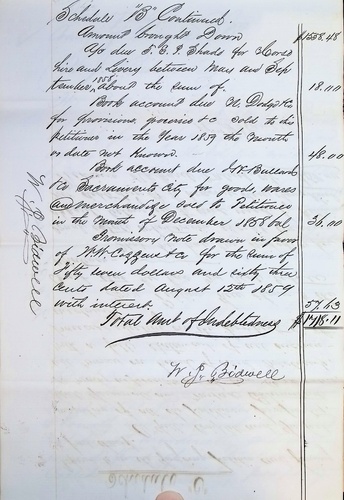 Schedule "B" Continued.
Amount brought Down $1558.48
A/c due S. & J. Shade for Horse
hire and Livery between May and Sep
tember 1858 about the sum of. 18.00
Book account due N. Dodge & Co
for provisions, groceries &c sold to the
petitioner in the Year 1859 the month
or date not Known. 48.00
Book account due J.W. Bullard
& Co Sacramento City for goods, wares
and merchandize sold to Petitioner
in the Month of December 1858 bal, 36.00
Promissory note drawn in favor
of W.W. & Co for the sum of
Fifty seven dollars and sixty three
Cents dated August 12th 1859
with interest. 57.63
Total Amt of Indebtedness $1718.11
W. J. Bidwell
W. J. Bidwell